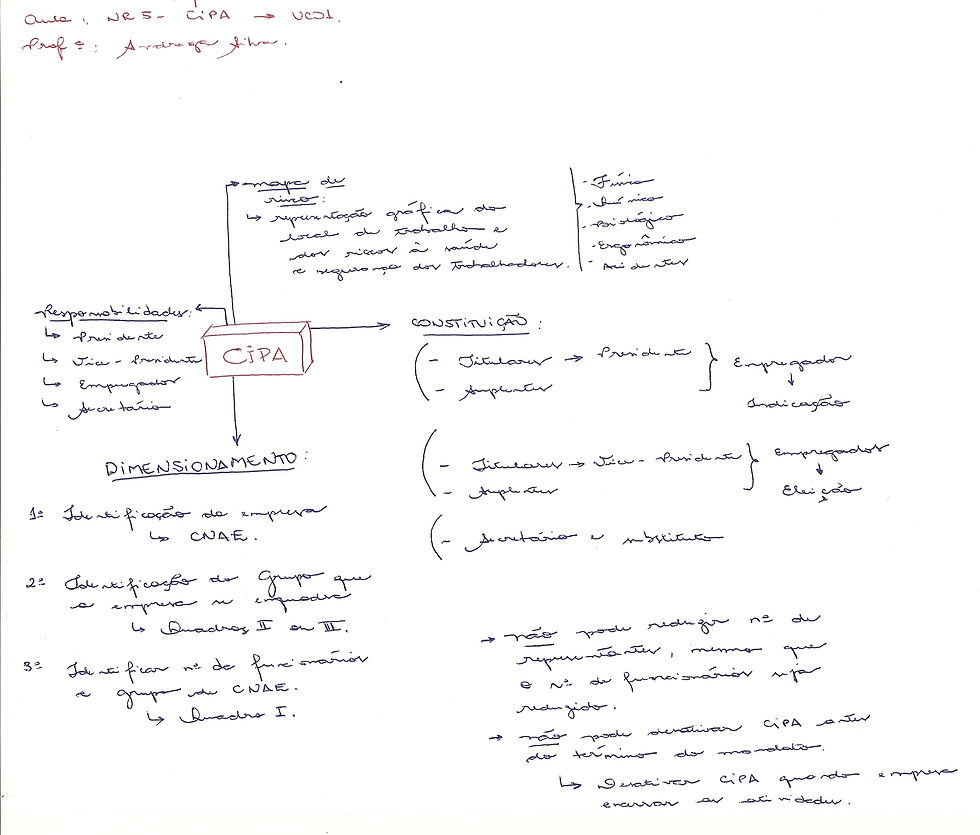 Aula: NR5 - CIPA → UC01.
Profª: Andreza Silva.
mapa de
risco:
↳ representação gráfica do
local de trabalho e
dos riscos à saúde
e segurança dos trabalhadores.
- Físico
- Químico
- Biológico
- Ergonômico
- Acidentes
Responsabilidades:
↳ Presidente
↳ Vice-Presidente
↳ Empregador
↳ Secretário
CIPA
CONSTITUIÇÃO:
- Titulares → Presidente
- Suplentes
Empregador
↓
Indicação
- Titulares → Vice-Presidente
- Suplentes
Empregados
↓
Eleição
- Secretário e substituto
DIMENSIONAMENTO:
1º Identificação da empresa
↳ CNAE.
2º Identificação do Grupo que
a empresa se enquadra
↳ Quadros II ou III.
3º Identificar nº de funcionários
e grupo de CNAE.
↳ Quadro I.
→ não pode reduzir nº de
representantes, mesmo que
o nº de funcionários seja
reduzido.
→ não pode desativar CIPA antes
do término do mandato.
↳ Desativar CIPA quando empresa
encerrar as atividades.